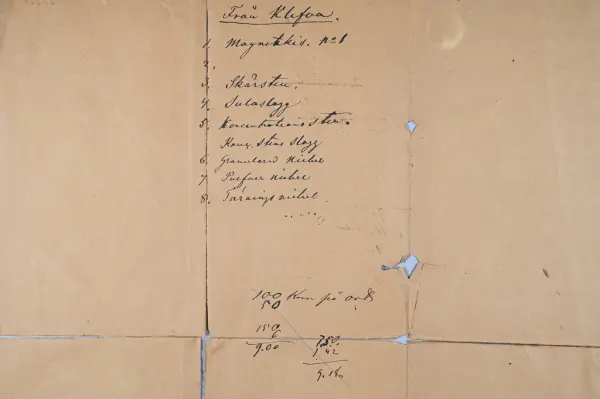 Från Klefva.
1. Magnetkis. No 1
2.
3. Skärsten.
4. Sulaslagg
5. Koncentrationssten.
Konz. stens slagg
6. Granulerad nickel
7. Pulfver nickel
8. Tärnings nickel
100 Km på
50
150
6
9.00
7.50
1.42
9.18